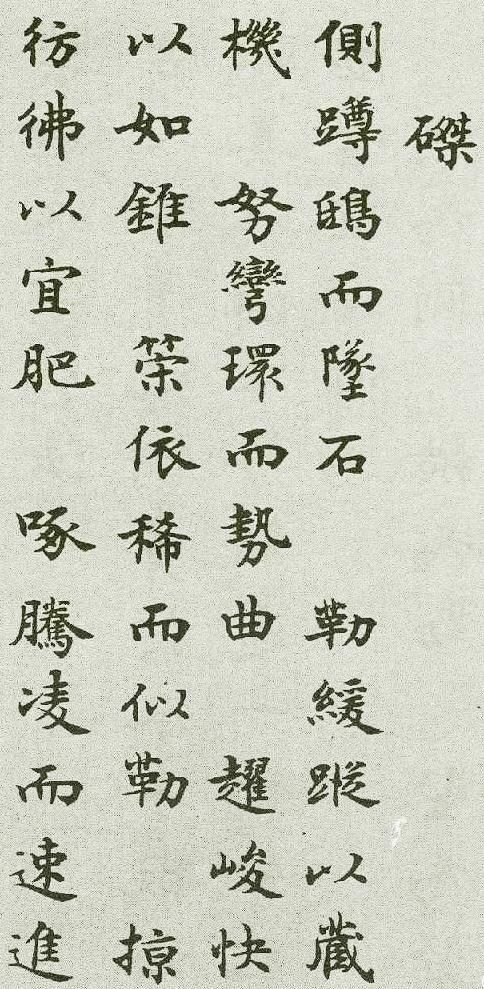 磔
側蹲鴟而墜石 勒緩蹤以藏
機 努彎環而勢曲 趯峻快
以如錐 策依稀而似勒 掠
彷彿以宜肥 啄騰凌而速進